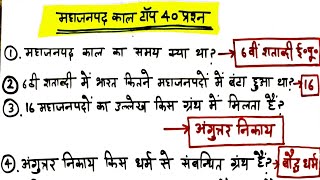 महाजनपद काल टॉप 40 प्रश्न
①. महाजनपद काल का समय क्या था? → 6वीं शताब्दी ई०पू०
② 6ठी शताब्दी में भारत कितने महाजनपदों में बंटा हुआ था? → 16
③. 16 महाजनपदों का उल्लेख किस ग्रंथ में मिलता है?
→ अंगुत्तर निकाय
④. अंगुत्तर निकाय किस धर्म से संबन्धित ग्रंथ है? → बौद्ध धर्म